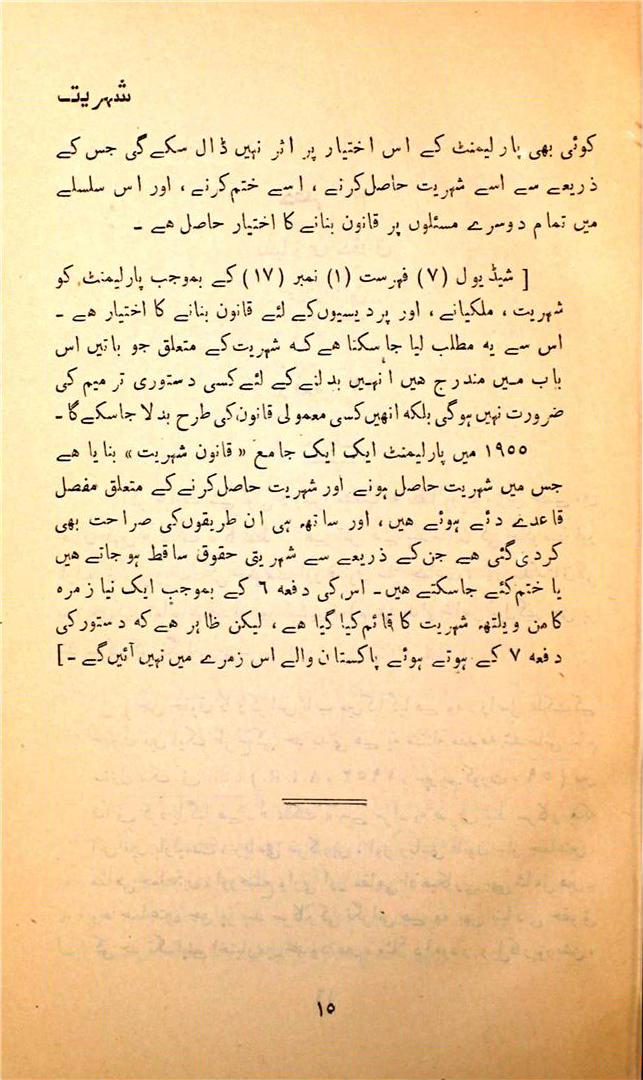 شہریت
کوئی بھی پارلیمنٹ کے اس اختیار پر اثر نہیں ڈال سکے گی جس کے
ذریعے سے اسے شہریت حاصل کرنے ، اسے ختم کرنے ، اور اس سلسلے
میں تمام دوسرے مسئلوں پر قانون بنانے کا اختیار حاصل ہے ۔
[ شیڈیول (۷) فہرست (۱) نمبر (۱۷) کے بموجب پارلیمنٹ کو
شہریت ، ملکیانے ، اور پردیسیوں کے لئے قانون بنانے کا اختیار ہے ۔
اس سے یہ مطلب لیا جا سکتا ہے کہ شہریت کے متعلق جو باتیں اس
باب میں مندرج ہیں اُنہیں بدلنے کے لئے کسی دستوری ترمیم کی
ضرورت نہیں ہوگی بلکہ انھیں کسی معمولی قانون کی طرح بدلا جا سکے گا ۔
۱۹۵۵ میں پارلیمنٹ ایک ایک جامع « قانون شہریت » بنایا ہے
جس میں شہریت حاصل ہونے اور شہریت حاصل کرنے کے متعلق مفصل
قاعدے دئے ہوئے ہیں ، اور ساتھ ہی ان طریقوں کی صراحت بھی
کردی گئی ہے جن کے ذریعے سے شہریتی حقوق ساقط ہو جاتے ہیں
یا ختم کئے جاسکتے ہیں ۔ اس کی دفعہ ۶ کے بموجب ایک نیا زمرہ
کامن ویلتھ شہریت کا قائم کیا گیا ہے ، لیکن ظاہر ہے کہ دستور کی
دفعہ ۷ کے ہوتے ہوئے پاکستان والے اس زمرے میں نہیں آئیں گے ۔ ]
۱۵